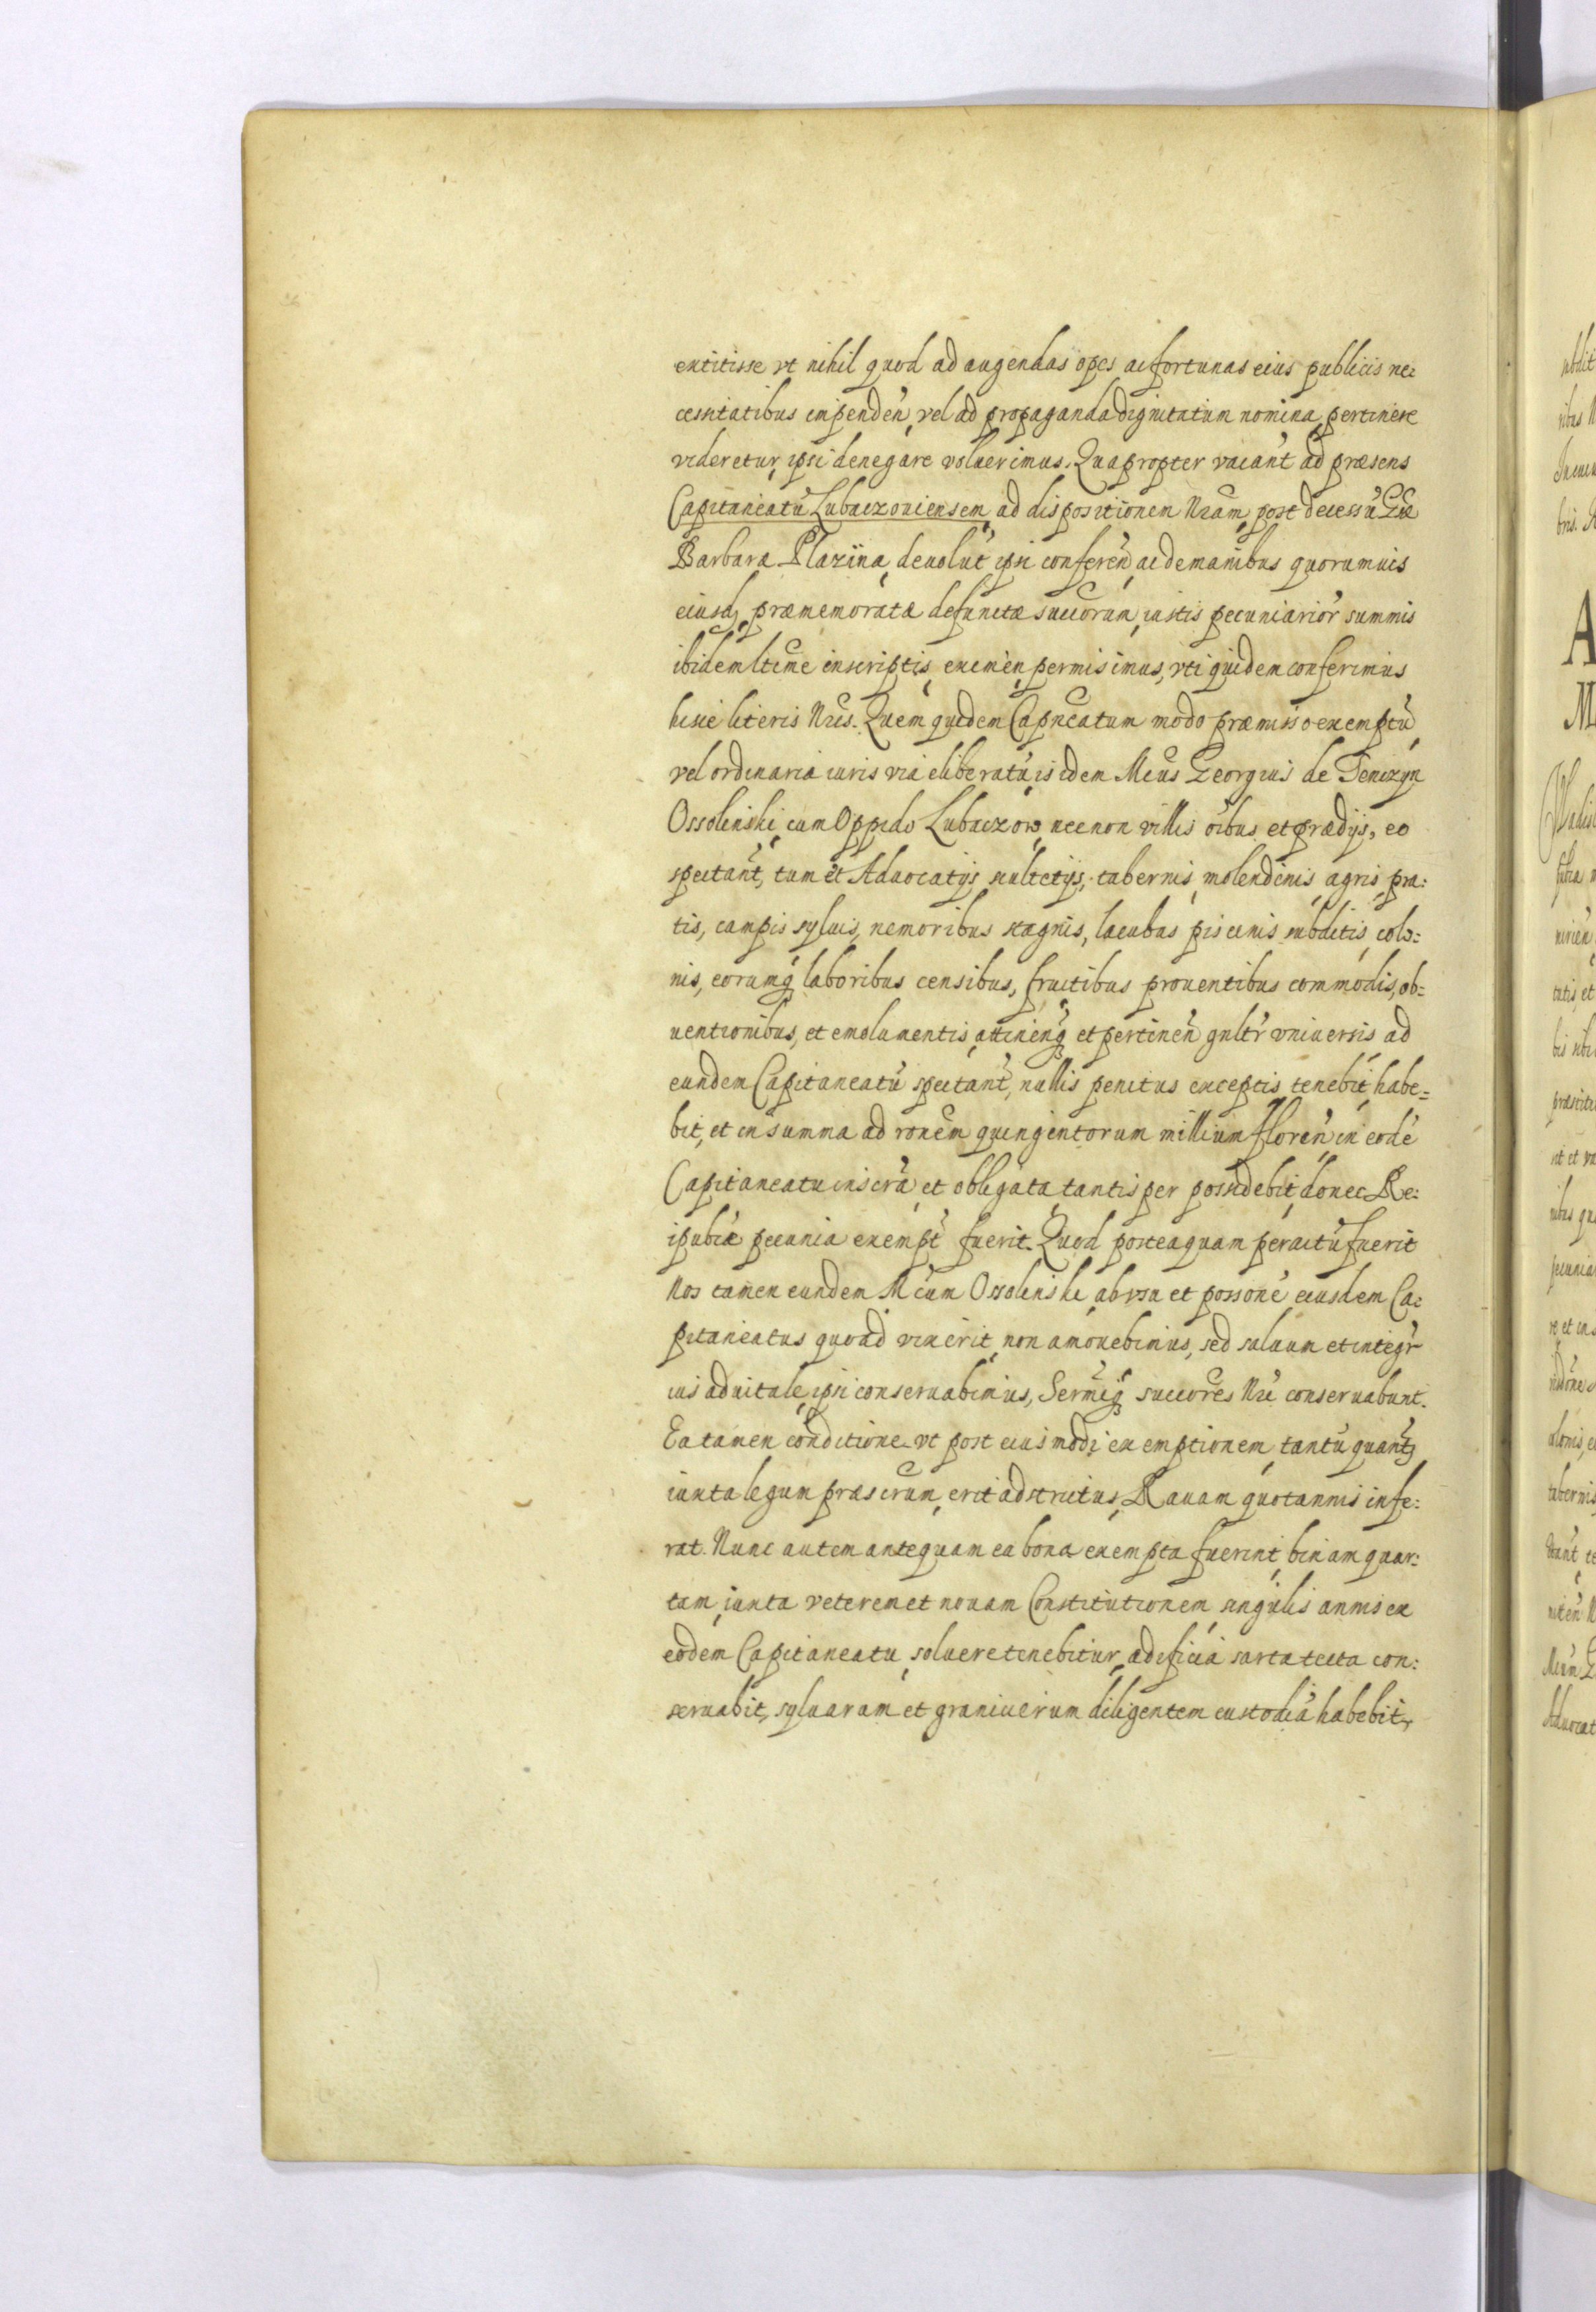 extitisse vt nihil quod ad augendas opes ac fortunas eius publicis ne:
cessitatibus impendeñ, vel ad propaganda dignitatum nomina pertinere
videretur, ipsi denegare voluerimus. Quapropter vacant̃ ad præsens
Capitaneatũ Lubaczouiensem, ad dispositionem Nr̃am, post decessũ Gñæ
Barbaræ Plaziina, deuolut̃ ipsi conferen̄, ac de manibus quorumuis
eiusd, præmemoratæ defunctæ succorum, iustis pecuniarior̃ summis
ibidem ltime inscriptis, eximen̄, permisimus, vti quidem conferimus
hisce literis Nr̃is. Quem quidem Capneatum modo præmisso exemptũ,
vel ordinaria iuris via eliberatũ, is idem Mcus Georgius de Tenczyn
Ossolinski, cum Oppido Lubaczow, necnon villis õibus, et prædijs, eo
spectant̃, tum et Aduocatijs, scultetijs, tabernis, molendinis, agris, pra:
tis, campis, syluis, nemoribus, stagnis, lacubus, piscinis, subditis, colo:
nis, eorumq́ laboribus, censibus, fructibus, prouentibus, commodis, ob=
uentionibus, et emolumentis, attinenq̃ et pertinen̄ gnltr̃ vniuersis ad
eundem Capitaneatũ spectant̃, nullis penitus exceptis, tenebit, habe=
bit, et in summa ad ronem quingentorum millium floren̄, in eodẽ
Capitaneatu inscr̃a, et obligata, tantisper possidebit, donec Re:
ipubcæ pecunia exempt̃ fuerit. Quod posteaquam peractũ fuerit
Nos tamen eundem Mcum Ossolinski, ab vsu et possone eiusdem Ca:
pitaneatus quoad vixerit, non amouebimus, sed saluum et integr̃
ius aduitale, ipsi conseruabimus, Sermiq̃ succores Nr̃i conseruabunt.
Ea tamen conditione vt post eiusmodi exemptionem, tantũ, quant̃
iuxta legum præscrum, erit adstrictus, Rauam quotannis infe:
rat. Nunc autem antequam ea bona exempta fuerint, binam quar:
tam, iuxta veterem et nouam Constitutionem, singulis annis ex
eodem Capitaneatu, soluere tenebitur, ædificia sarta tecta con:
seruabit, syluarum et graniuerum diligentem custodiã habebit,